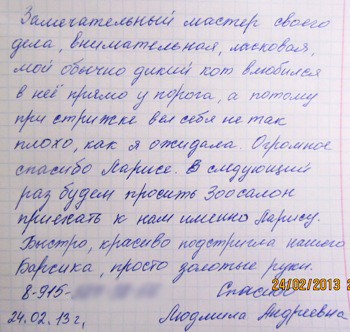 Замечательный мастер своего
дела, внимательная, ласковая,
мой обычно дикий кот влюбился
в неё прямо у порога, а потому
при стрижке вел себя не так
плохо, как я ожидала. Огромное
спасибо Ларисе. В следующий
раз будем просить Зоосалон
приехать к нам именно Ларису.
Быстро, красиво подстригла нашего
Барсика, просто золотые руки.
8-915- Спасибо
24/02/2013
24.02.13г, Людмила Андреевна